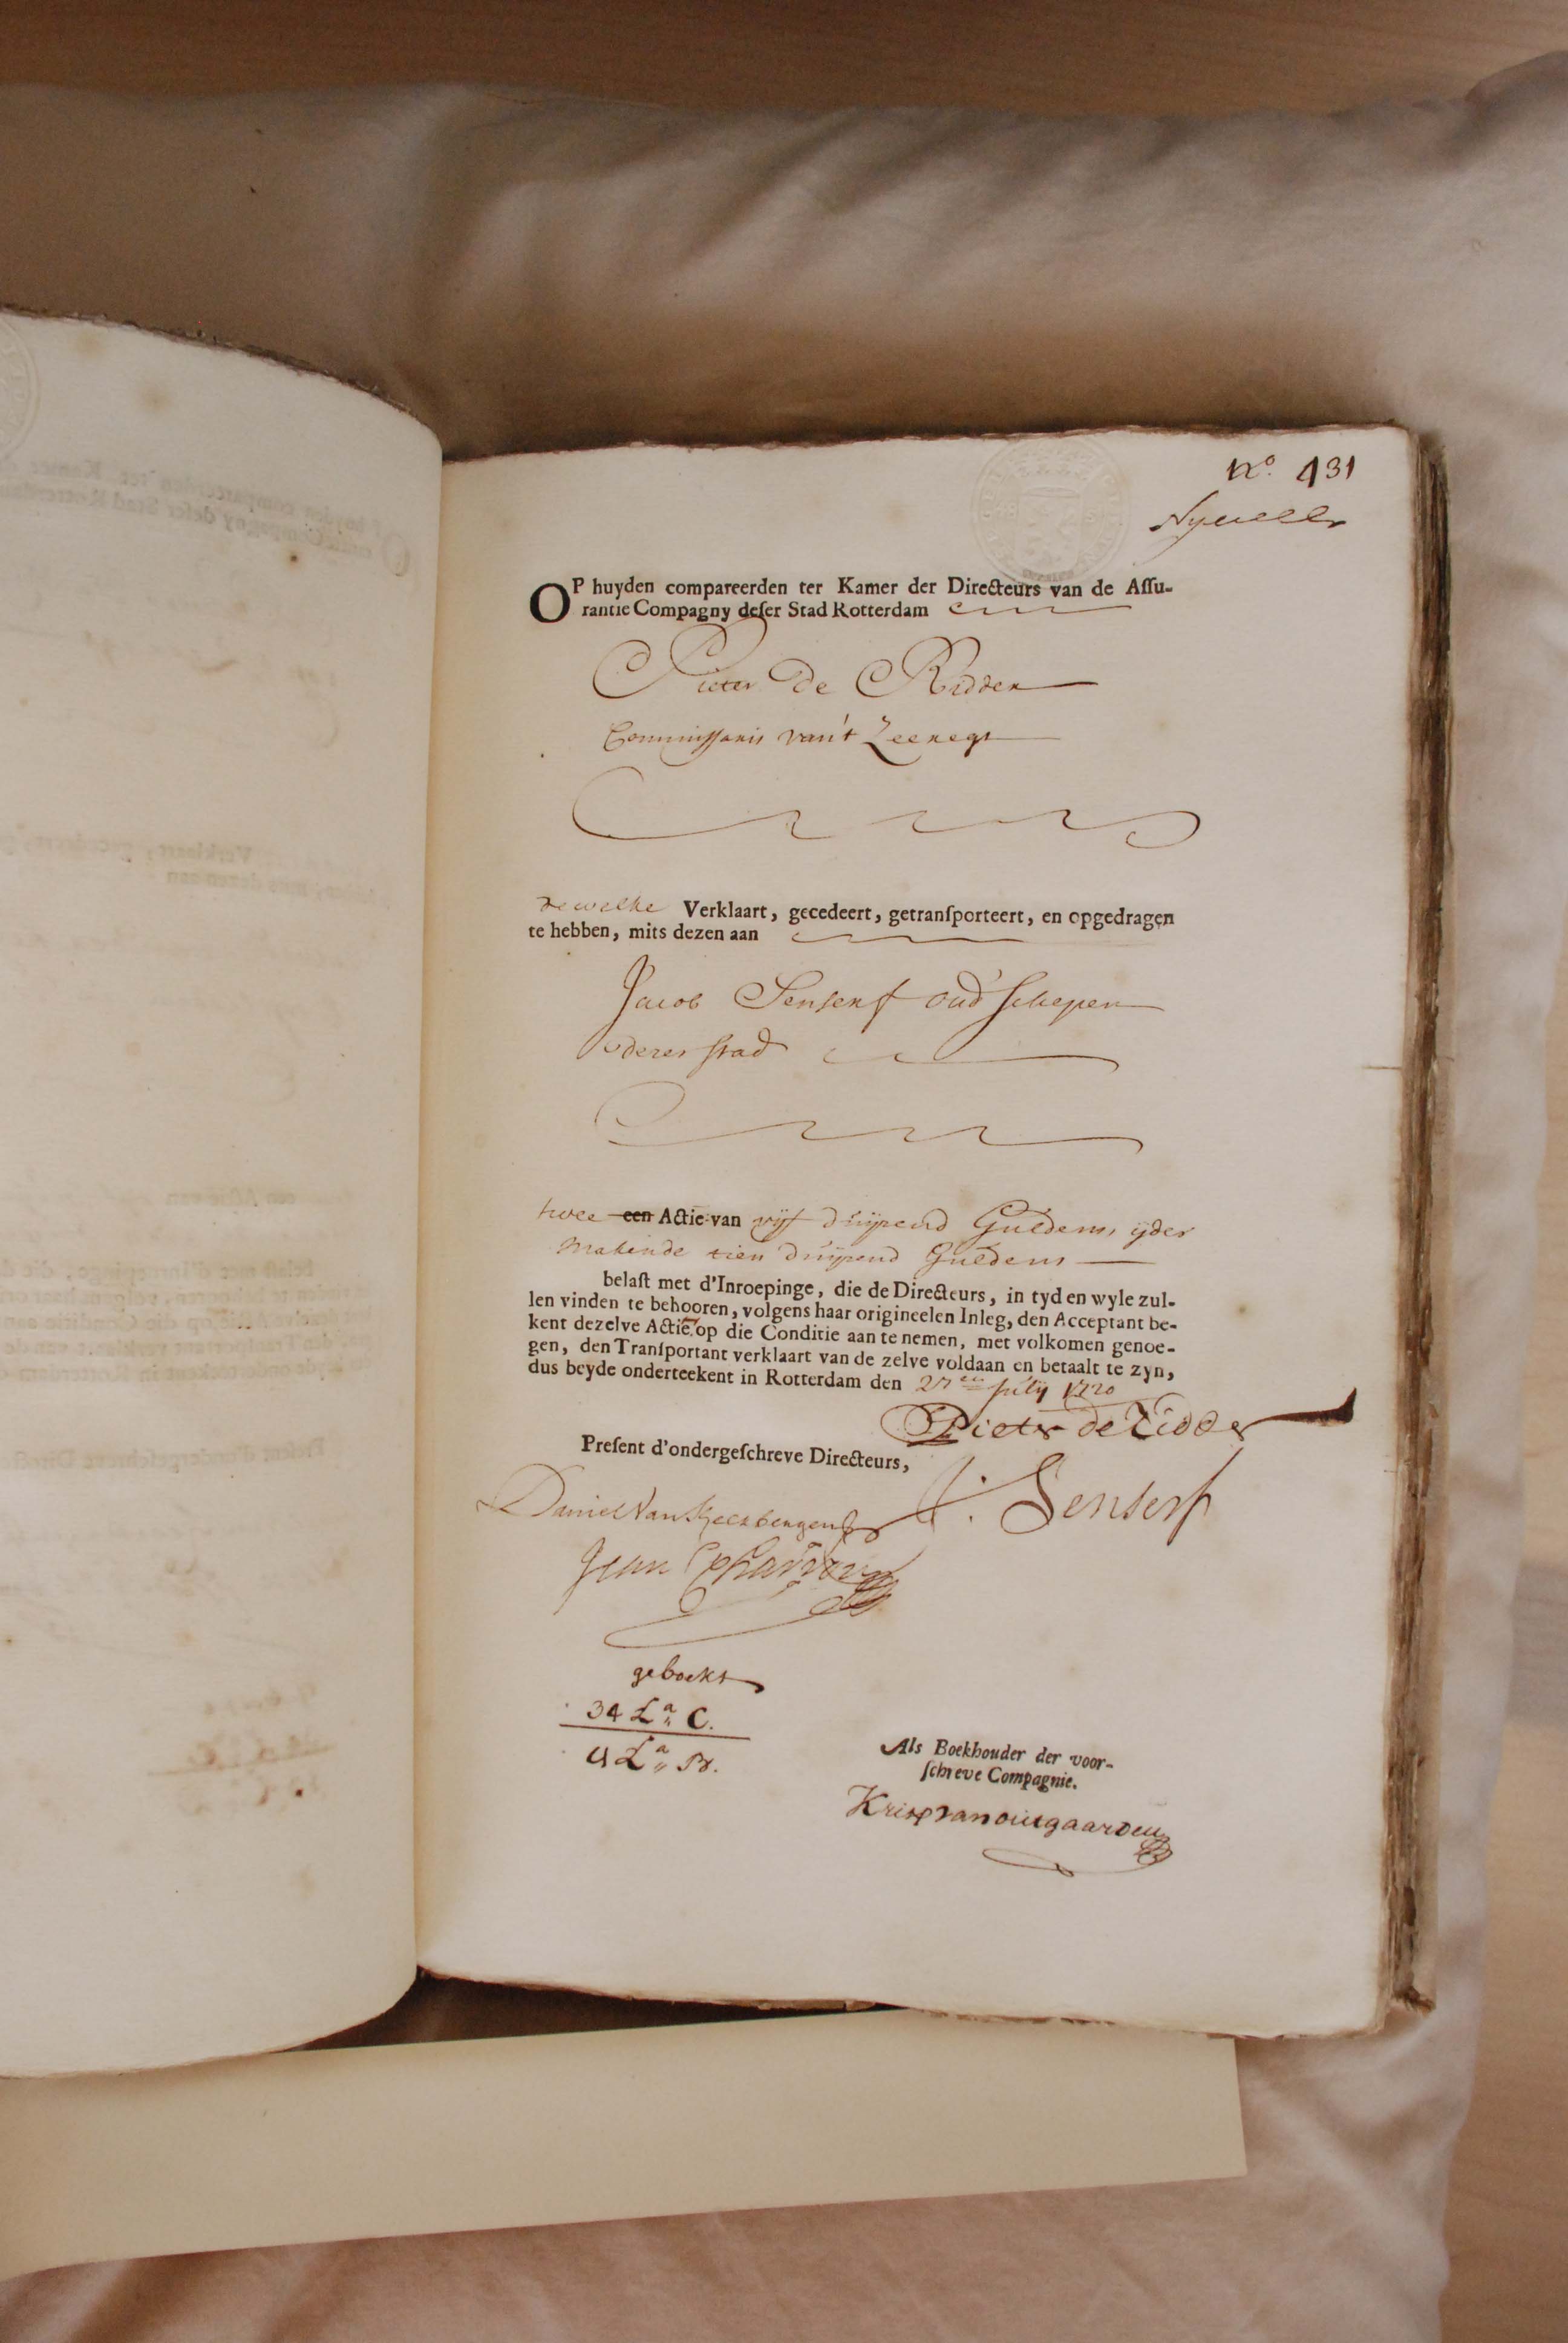 No. 431
OP huyden compareerden ter Kamer der Directeurs van de Assu-
rantie Compagny deser Stad Rotterdam
Pieter De Ridder
Commissaris van't Zeeregt
dewelke Verklaart, gecedeert, getransporteert, en opgedragen
te hebben, mits dezen aan
Jacob Senserf oud schepen
deser stad
twee een Actie van vijf duijsend Guldens, ijder
makende tien duijsend Guldens
belast met d'Inroepinge, die de Directeurs, in tyd en wyle zul-
len vinden te behooren, volgens haar origineelen Inleg, den Acceptant be-
kent dezelve Actie op die Conditie aan te nemen, met volkomen genoe-
gen, den Transportant verklaart van de zelve voldaan en betaalt te zyn,
dus beyde onderteekent in Rotterdam den 27en july 1720
Pieter de Ridder
Present d'ondergeschreve Directeurs,
J. Senserf
Daniel Van
Jean
geboekt
34 La C.
4 La B.
Als Boekhouder der voor-
schreve Compagnie.